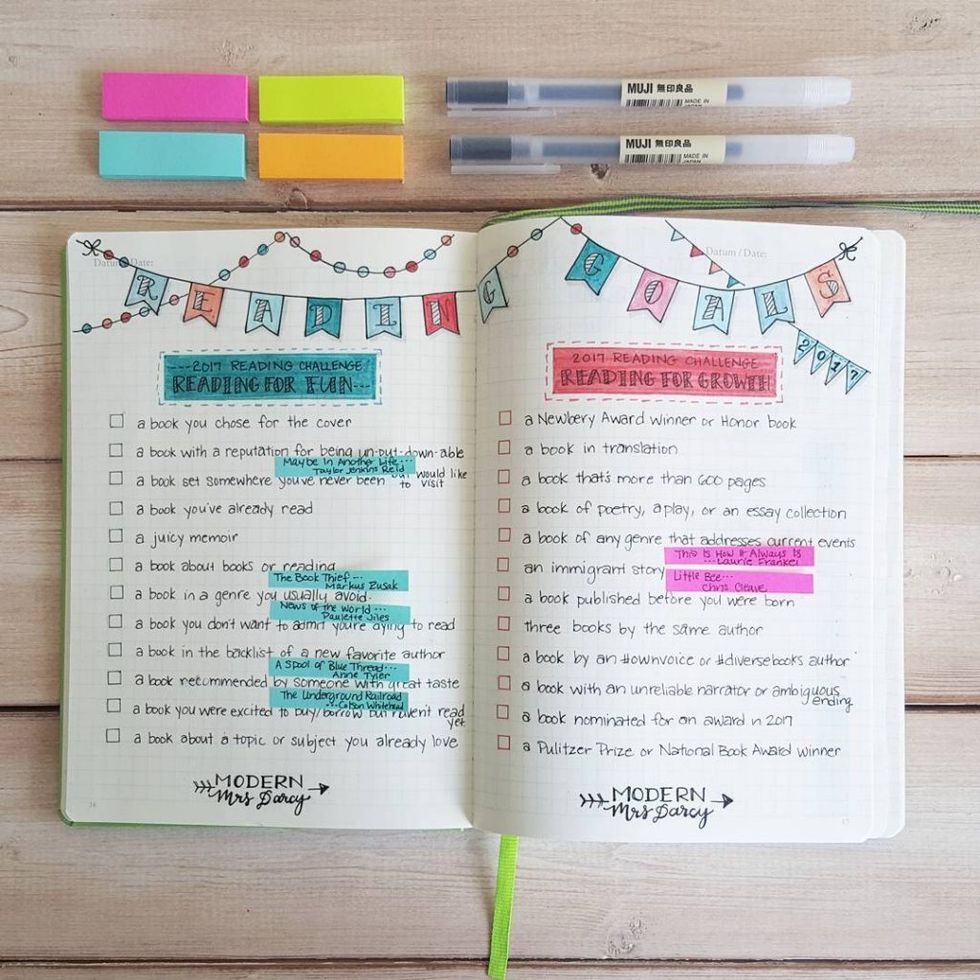 MUJI 無印良品
MADE IN
JAPAN
MUJI 無印良品
MADE IN
JAPAN
Datum / Date:
Datum / Date:
READING GOALS
2017
2017 READING CHALLENGE
READING FOR FUN
a book you chose for the cover
a book with a reputation for being un-put-down-able
Maybe in Another Life...
Taylor Jenkins Reid
a book set somewhere you've never been but would like
to visit
a book you've already read
a juicy memoir
a book about books or reading
The Book Thief...
Markus Zusak
a book in a genre you usually avoid.
News of the World...
Paulette Jiles
a book you don't want to admit you're dying to read
a book in the backlist of a new favorite author
A Spool of Blue Thread...
Anne Tyler
a book recommended by someone with great taste
The Underground Railroad
...Colson Whitehead
a book you were excited to buy/borrow but haven't read
yet
a book about a topic or subject you already love
MODERN
Mrs Darcy
36
2017 READING CHALLENGE
READING FOR GROWTH
a Newbery Award Winner or Honor book
a book in translation
a book that's more than 600 pages
a book of poetry, a play, or an essay collection
a book of any genre that addresses current events
This Is How It Always Is
...Laurie Frankel
an immigrant story
Little Bee...
Chris Cleave
a book published before you were born
three books by the same author
a book by an #ownvoice or #diversebooks author
a book with an unreliable narrator or ambiguous
ending
a book nominated for an award in 2017
a Pulitzer Prize or National Book Award winner
MODERN
Mrs Darcy